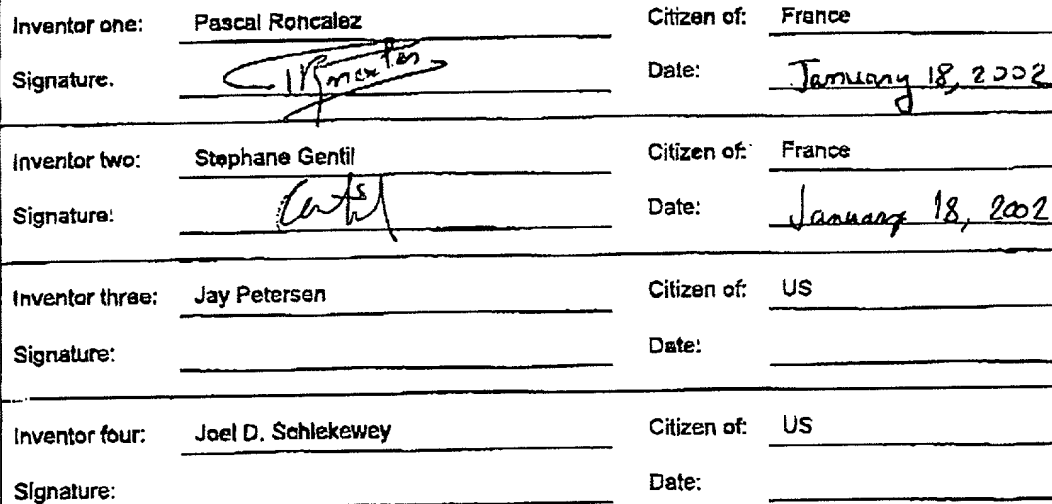 Inventor one: Pascal Roncalez Citizen of: France
Signature. Date: January 18, 2002
Inventor two: Stephane Gentil Citizen of: France
Signature: Gentil Date: January 18, 2002
Inventor three: Jay Petersen Citizen of: US
Signature: Date:
Inventor four: Joel D. Schlekewey Citizen of: US
Signature: Date: